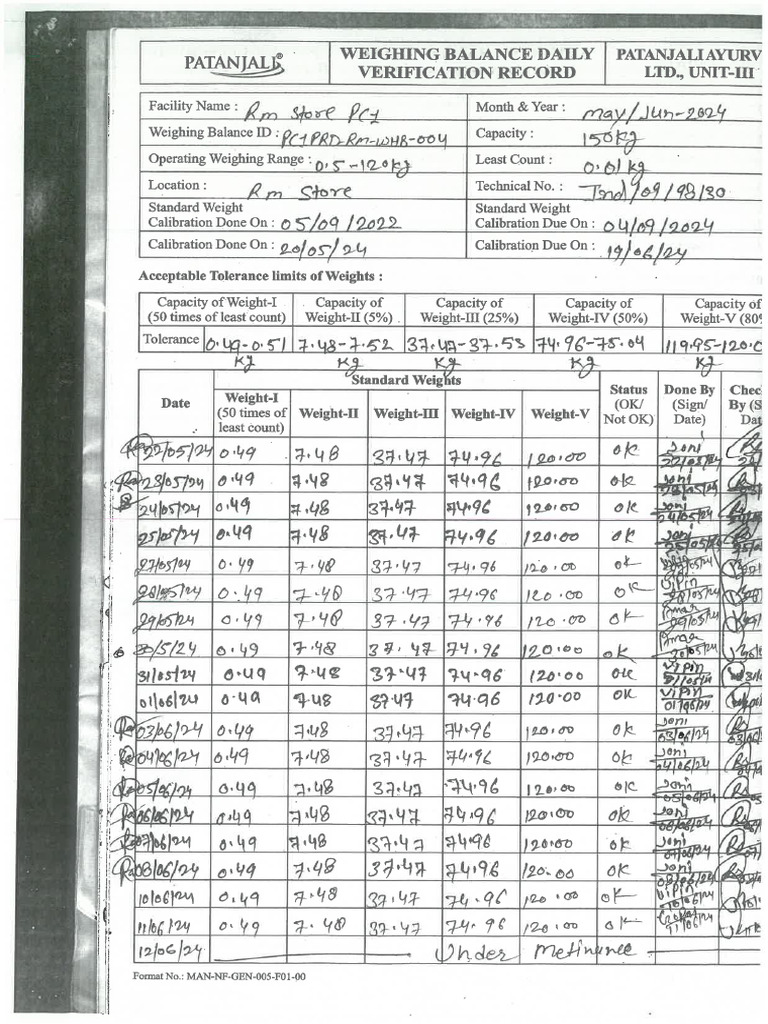 PATANJALI®
WEIGHING BALANCE DAILY
VERIFICATION RECORD
PATANJALI AYURV
LTD., UNIT-III
Facility Name : Rm Store PC1
Month & Year : may/Jun-2024
Weighing Balance ID : PC1PRD2RM-WHB-004
Capacity : 150kg
Operating Weighing Range : 0.5-120kg
Least Count : 0.01kg
Location : Rm Store
Technical No. : Ind/09/98/30
Standard Weight
Calibration Done On : 05/09/2022
Standard Weight
Calibration Due On : 04/09/2024
Calibration Done On : 20/05/24
Calibration Due On : 19/06/24
Acceptable Tolerance limits of Weights :
Capacity of Weight-I
(50 times of least count)
Capacity of
Weight-II (5%)
Capacity of
Weight-III (25%)
Capacity of
Weight-IV (50%)
Capacity of
Weight-V (80%
Tolerance 0.49-0.51 7.48-7.52 37.47-37.53 74.96-75.04 119.95-120.0
kg kg kg kg kg
Date
Standard Weights
Weight-I
(50 times of
least count)
Weight-II
Weight-III
Weight-IV
Weight-V
Status
(OK/
Not OK)
Done By
(Sign/
Date)
Chec
By (S
Dat
22/05/24 0.49 7.48 37.47 74.96 120.00 OK Joni 22/05/24
23/05/24 0.49 7.48 37.47 74.96 120.00 OK Joni 23/05/24
24/05/24 0.49 7.48 37.47 74.96 120.00 OK Joni 24/05/24
25/05/24 0.49 7.48 37.47 74.96 120.00 OK Joni 25/05/24
27/05/24 0.49 7.48 37.47 74.96 120.00 OK
28/05/24 0.49 7.48 37.47 74.96 120.00 OK Vipin 28/05/24
29/05/24 0.49 7.48 37.47 74.96 120.00 OK Amar 29/05/24
30/5/24 0.49 7.48 37.47 74.96 120.00 OK Amar 30/05/24
31/05/24 0.49 7.48 37.47 74.96 120.00 OK Vipin 31/05/24
01/06/24 0.49 7.48 37.47 74.96 120.00 OK Vipin 01/06/24
03/06/24 0.49 7.48 37.47 74.96 120.00 OK Joni 03/06/24
04/06/24 0.49 7.48 37.47 74.96 120.00 OK Joni 04/06/24
05/06/24 0.49 7.48 37.47 74.96 120.00 OK Joni 05/06/24
06/06/24 0.49 7.48 37.47 74.96 120.00 OK Joni 06/06/24
07/06/24 0.49 7.48 37.47 74.96 120.00 OK Joni 07/06/24
08/06/24 0.49 7.48 37.47 74.96 120.00 OK Joni 08/06/24
10/06/24 0.49 7.48 37.47 74.96 120.00 OK Vipin 10/06/24
11/06/24 0.49 7.48 37.47 74.96 120.00 OK 11/06/24
12/06/24 Under Metinunee
Format No.: MAN-NF-GEN-005-F01-00